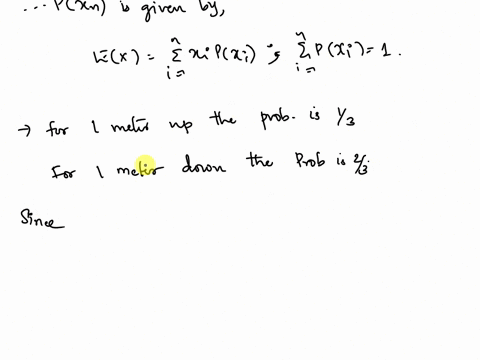 ... P(xn) is given by,
E(x) = Σ xi P(xi) ; Σ P(xi) = 1.
→ for 1 meter up the prob. is 1/3
For 1 meter down the Prob is 2/3
Since